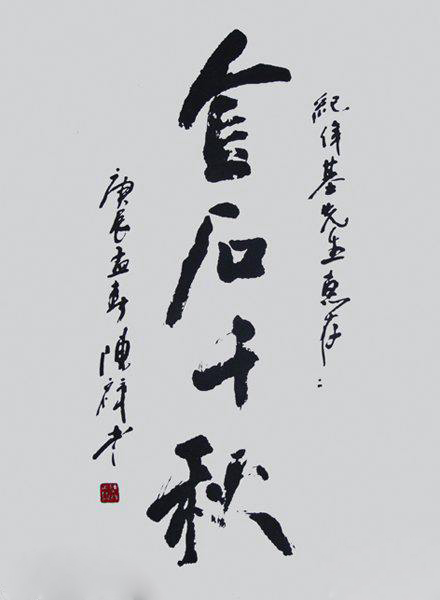 紀偉基先生惠存：
金石千秋
庚辰孟春 陳祥書